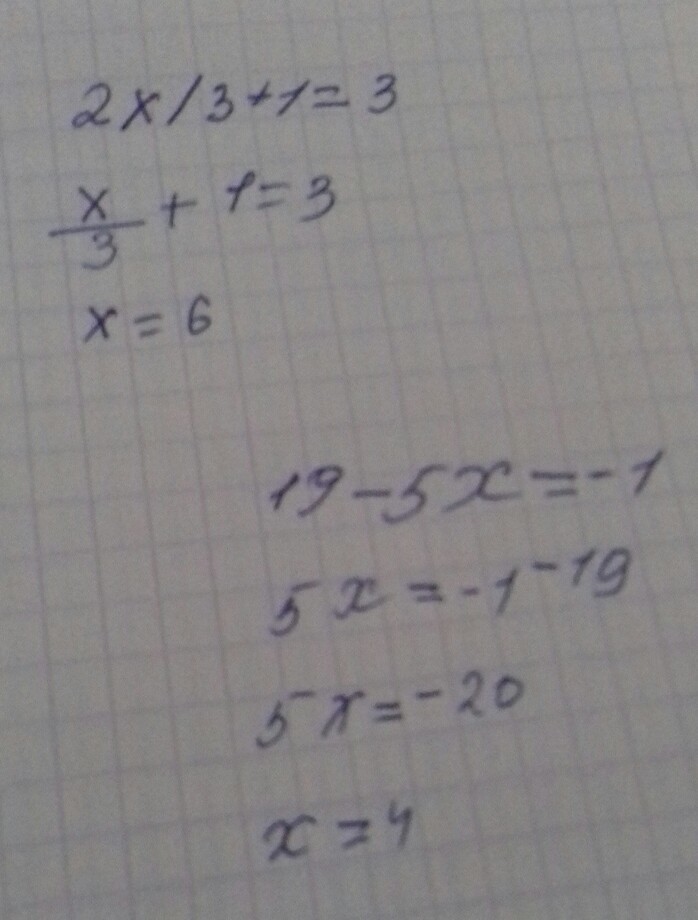 2x/3+1=3
x/3 + 1=3
x=6
19-5x=-1
5x=-1-19
5x=-20
x=4